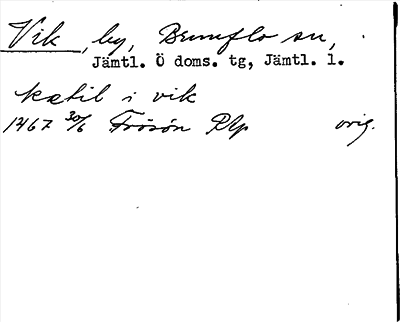 Vik, by, Brunflo sn,
Jämtl. Ö doms. tg, Jämtl. l.
kætil i vik
1467 30/6 Frösön Rlp orig.